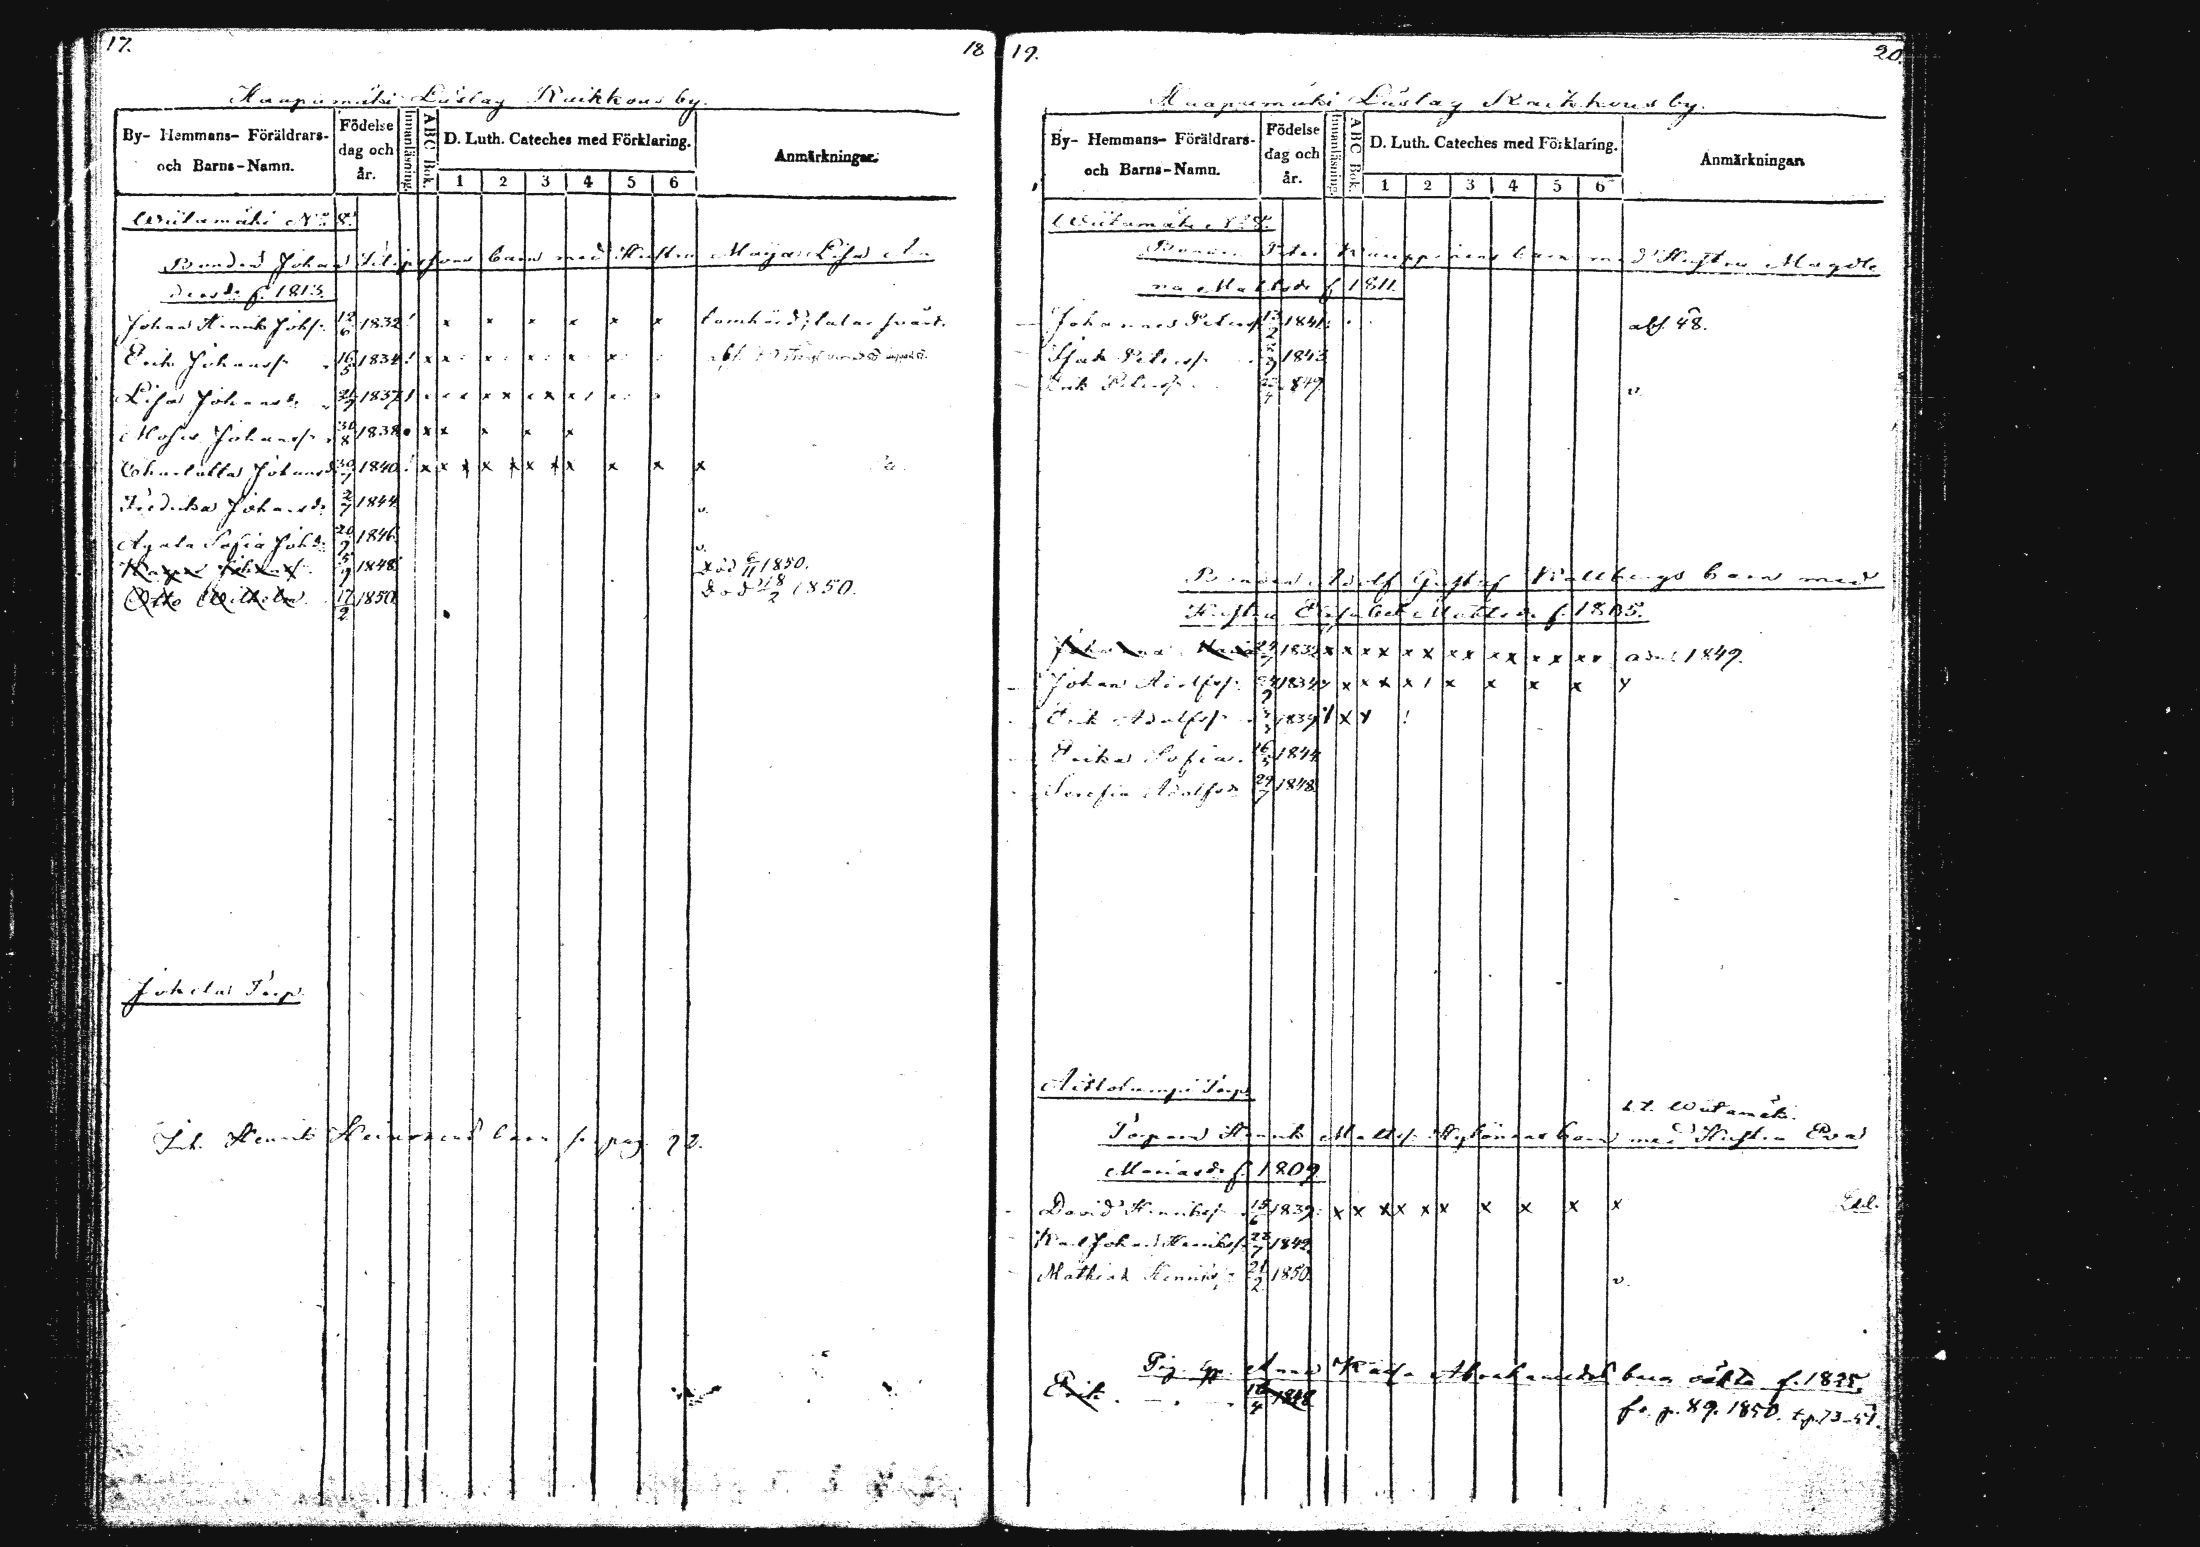 17.
18
Haapamäki Läslag Raikkous by.
By- Hemmans- Föräldrars- och Barns-Namn.
Födelse dag och år.
Innanläsning.
ABC Bok.
D. Luth. Cateches med Förklaring.
1 2 3 4 5 6
Anmärkningar.
Wiitamäki No 8.
Bonden Johan Filipssons barn med Hustru Maja Lisa An
dersdr f. 1813.
Johan Henrik Johss. 12/6 1832 ! x x x x x x lomhörd, talar svårt.
Erik Johanss. 16/5 1834 ! x x x x x x
Lisa Johansdr 1837 !
Moses Johanss. 30/8 1838 x x x x x
Charlotta Johansd. 30/7 1840 ! x x x x x x x x x x x
Fredrika Johansdr 2/7 1844 v.
Agata Sofia Johdr 20/9 1846 v.
Johanss. 5/9 1848 död 6/11 1850.
Otto Wilhelm. 17/2 1850 död 18/2 1850.
Jokela Torp.
Joh. Henrik Heinonens barn se pag. 72.
19.
20.
Haapamäki Läslag Raikkous by.
By- Hemmans- Föräldrars- och Barns-Namn.
Födelse dag och år.
Innanläsning.
ABC Bok.
D. Luth. Cateches med Förklaring.
1 2 3 4 5 6
Anmärkningar.
Wiitamäki No 8.
Bonden Peter Kauppinens barn med Hustru Magdle
na Mattsdr f. 1811.
Johannes Peterss. 13/2 1841 abs. 48.
Isak Peterss. 1843
Erik Peterss. 1849 v.
Bonden Adolf Gustaf Wallbergs barn med
Hustru Elisabet Mattsdr f. 1805.
Johanna 1832 x x x x x x x x x x x x x x adm. 1849.
Johan Adolfss. 1834 x x x x x x x x x
Erik Adolfss. 1839 x x !
Erika Sofia. 16/5 1844
Serafia Adolfsdr 29/7 1848
Aittolampi Torp.
t. t. Wiitamäki.
Torparen Henrik Matss. Hyvönens barn med Hustru Eva
Mariasdr f. 1809.
David Henrikss. 15/6 1839 x x x x x x x x x x
Karl Johan Henrikss. 22/7 1842
Mathias Henrikss. 21/2 1850 v.
Pig. Anna Kajsa Abrahamsdrs barn oäkta f. 1825.
Erik. 16/4 1848 fr. p. 89. 1850. t.p. 73-51.